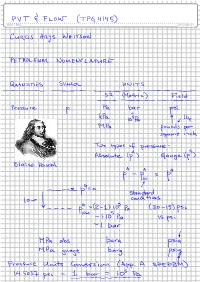 PVT & FLOW (TPG4145)
Curtis Hays Whitson
PETROLEUM NOMENCLATURE
Quantities Symbol UNITS
SI (Metric) Field
Pressure p Pa bar psi
kPa 10⁵Pa
MPa pounds per
square inch
Two types of pressure
Absolute (pᵃ) Gauge (pᵍ)
Blaise Pascal
Standard
conditions
10 m
~1 bar
MPa abs bara psia
MPa gauge barg psig
Pressure Units Conversion (App. A SPEPBM)
14.5037 psi = 1 bar = 10⁵ Pa